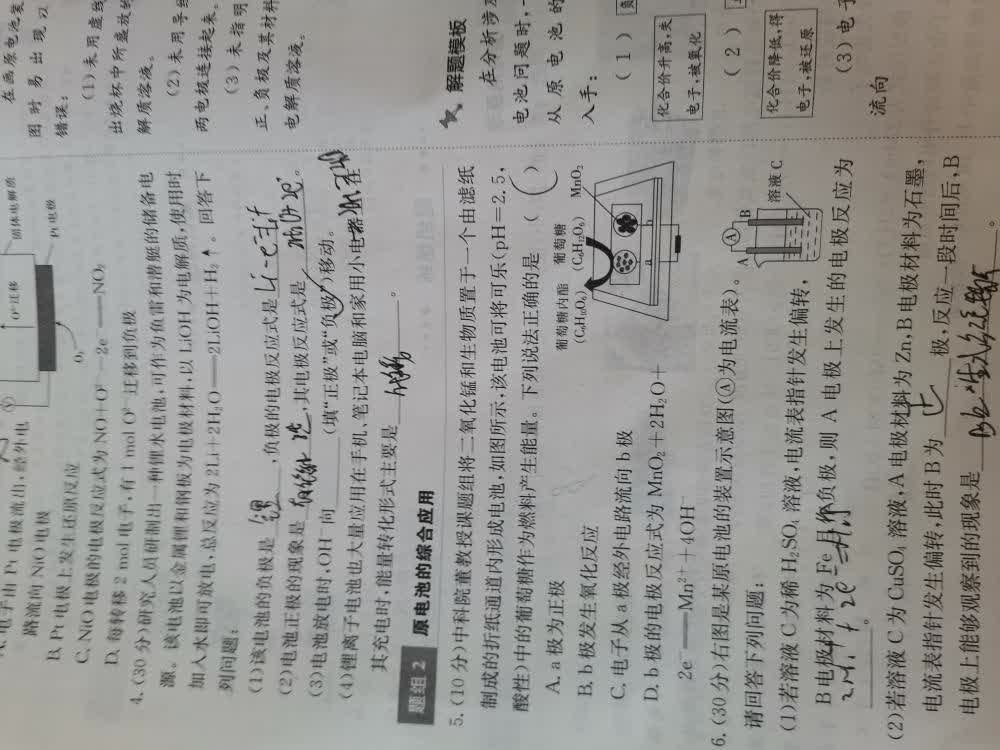 固体电解质
O²⁻迁移
Pt电极
O₂
路流向NiO电极
B. Pt电极上发生还原反应
C. NiO电极的电极反应式为NO+O²⁻-2e⁻══NO₂
D. 每转移2 mol电子,有1 mol O²⁻迁移到负极
4. (30分)研究人员研制出一种锂水电池,可作为鱼雷和潜艇的储备电
源。该电池以金属锂和钢板为电极材料,以LiOH为电解质,使用时
加入水即可放电,总反应为2Li+2H₂O══2LiOH+H₂↑。回答下
列问题:
(1)该电池的负极是 锂 ,负极的电极反应式是 Li-e⁻=Li⁺
(2)电池正极的现象是 ,其电极反应式是 。
(3)电池放电时,OH⁻向 (填“正极”或“负极”)移动。
(4)锂离子电池也大量应用在手机、笔记本电脑和家用小电器
其充电时,能量转化形式主要是 。
题组2 原电池的综合应用
5. (10分)中科院董教授课题组将二氧化锰和生物质置于一个由滤纸
制成的折纸通道内形成电池,如图所示,该电池可将可乐(pH=2.5,
酸性)中的葡萄糖作为燃料产生能量。下列说法正确的是 ( )
葡萄糖内酯 葡萄糖
(C₆H₁₀O₆) (C₆H₁₂O₆) MnO₂
a b
A. a极为正极
B. b极发生氧化反应
C. 电子从a极经外电路流向b极
D. b极的电极反应式为MnO₂+2H₂O+
2e⁻══Mn²⁺+4OH⁻
6. (30分)右图是某原电池的装置示意图(Ⓐ为电流表)。
请回答下列问题:
A Ⓐ B
溶液C
(1)若溶液C为稀H₂SO₄溶液,电流表指针发生偏转,
B电极材料为Fe且作负极,则A电极上发生的电极反应为
2H⁺+2e⁻=H₂↑ 。
(2)若溶液C为CuSO₄溶液,A电极材料为Zn,B电极材料为石墨,
电流表指针发生偏转,此时B为 正 极,反应一段时间后,B
电极上能够观察到的现象是 。
在画原电池装
图时易出现以
错误:
(1)未用虚线
出烧杯中所盛放的
解质溶液。
(2)未用导线
两电极连接起来。
(3)未指明
正、负极及其材料
电解质溶液。
解题模板
在分析涉及
电池问题时,
从原电池的
入手:
(1)
化合价升高,失
电子,被氧化
(2)
化合价降低,得
电子,被还原
(3)电子
流向